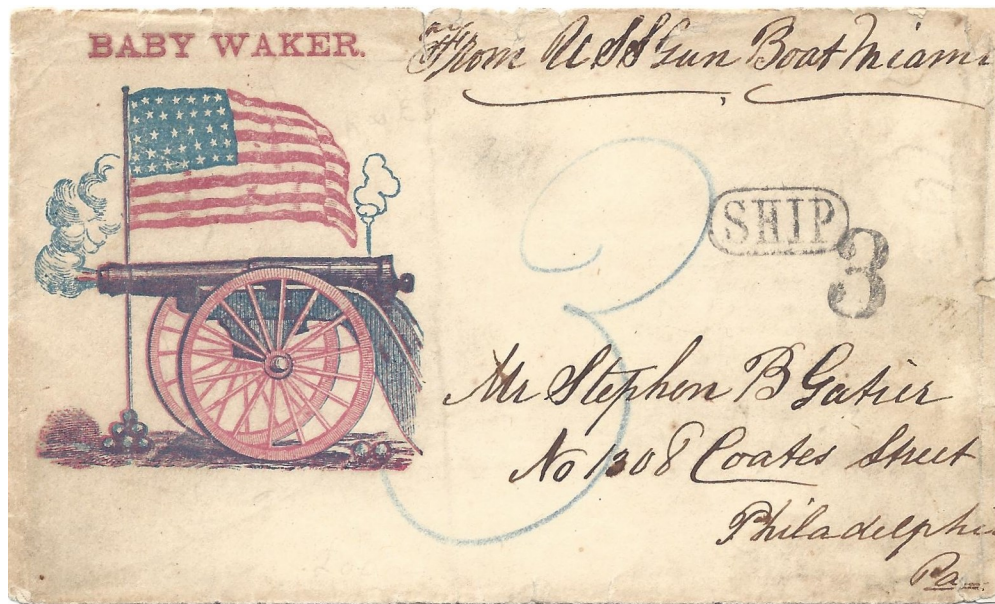 BABY WAKER.
From U S S Gun Boat Miami
3
SHIP
3
Mr Stephen B Gatier
No 1308 Coates Street
Philadelphi
Pa